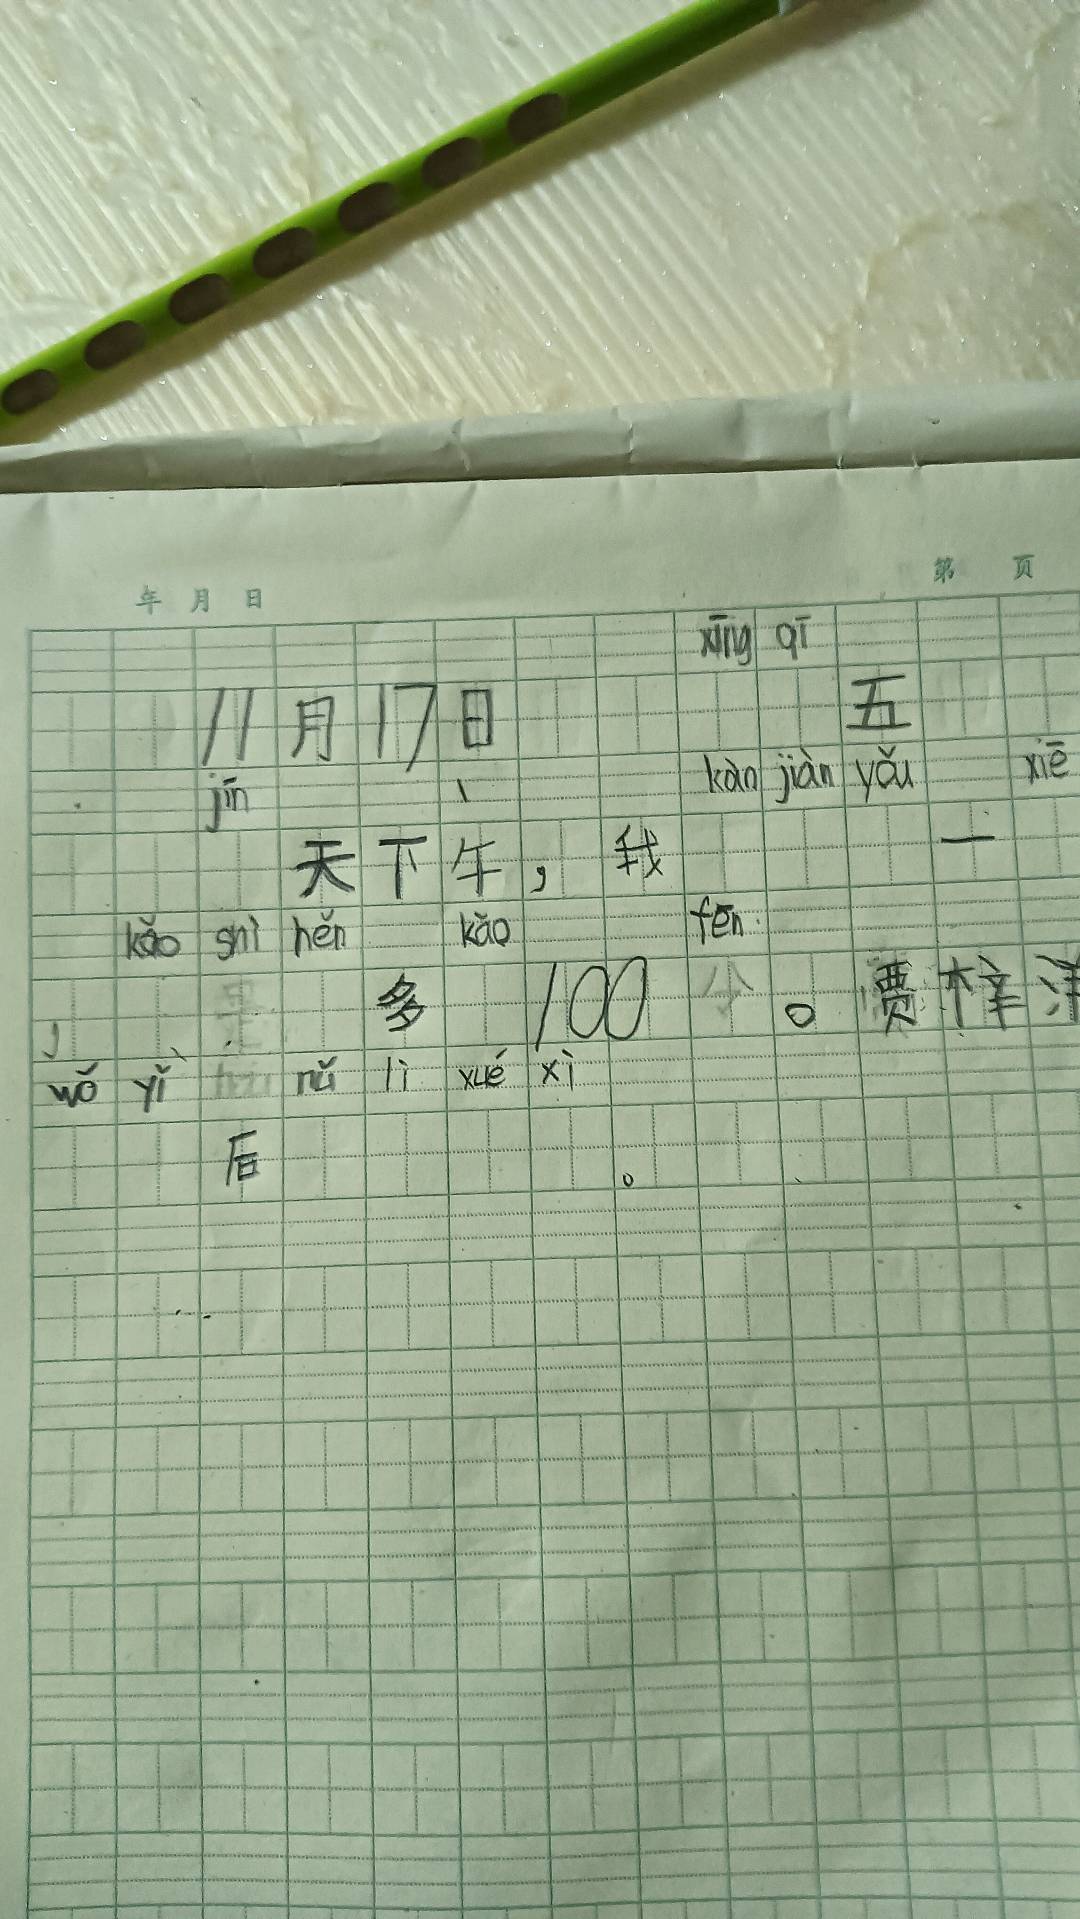 年 月 日 第 页
xīng qī
11月17日 五
jīn kàn jiàn yǒu xiē
天下午，我 一
kǎo shì hěn kǎo fēn
多 100 。贾梓洋
wǒ yǐ nǔ lì xué xì
后 。